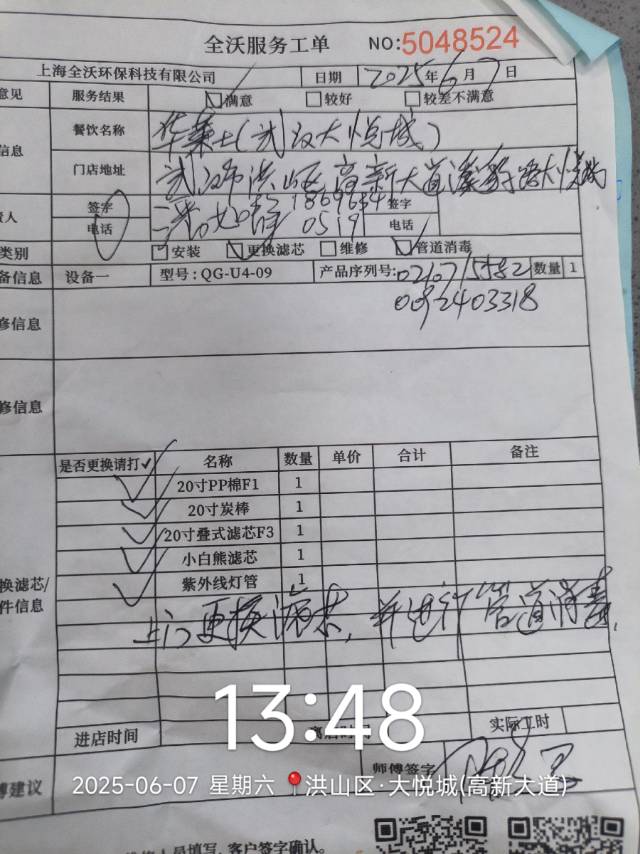 全沃服务工单 NO:5048524
上海全沃环保科技有限公司 日期 2025年6月7日
意见 服务结果 满意 较好 较差不满意
信息 餐饮名称 华莱士(武汉大悦城)
门店地址 武汉市洪山区高新大道 大悦城
责人 签字 签字
电话 0519 电话
类别 安装 更换滤芯 维修 管道消毒
备信息 设备一 型号:QG-U4-09 产品序列号: 数量 1
0092403318
修信息
修信息
是否更换请打✓ 名称 数量 单价 合计 备注
20寸PP棉F1 1
20寸炭棒 1
20寸叠式滤芯F3 1
小白熊滤芯 1
换滤芯/ 紫外线灯管 1
件信息
上门更换滤芯,并进行管道消毒.
13:48
进店时间 实际工时
师傅建议 师傅签字
2025-06-07 星期六 洪山区·大悦城(高新大道)
人员填写,客户签字确认。